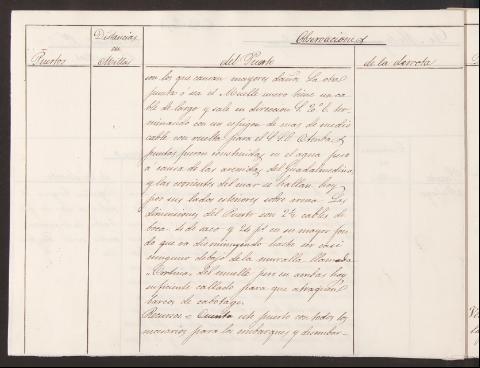 Puertos
Distancias
en
Millas
Observaciones
del Puerto
de la derrota
son los que causan mayores daños. La otra
punta ó sea el Muelle nuevo tiene un ca-
ble de largo y sale en direccion S. E. ter-
minando con un espigon de mas de medio
cable con vuelta para el Ambas
puntas fueron construidas en el agua pero
a causa de las avenidas del Guadalmedina,
y las corrientes del mar se hallan hoy
por sus lados esteriores sobre arena. Las
dimensiones del Puerto son 2½ cables de
boca de saco y 24 ps en su mayor fon-
do que va disminuyendo hasta ser casi
ninguno debajo de la muralla llamada
Cortina del muelle pero en ambas hay
suficiente callado para que atraquen
barcos de cabotage.
Recursos = Cuenta este puerto con todos los
necesarios para los embarques y desembar-